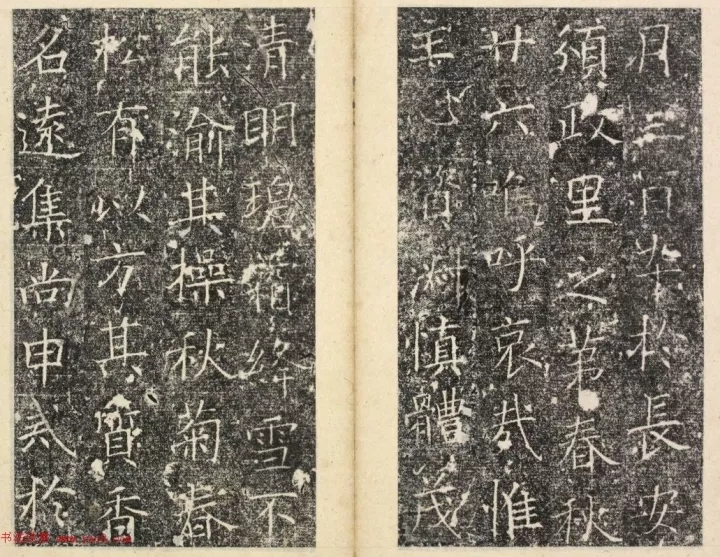 月三日卒於長安
頒政里之第春秋
廿六嗚呼哀哉惟
主心資淑慎體茂
清明霜絳雪不
能渝其操秋菊春
松有以方其質香
名遠集尚申於